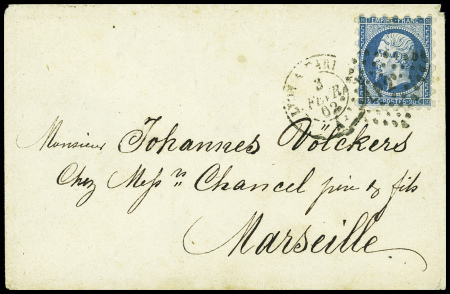 EMPIRE FRANC
POSTES
3
FEVR.
62
Monsieur Johannes Volckers
Chez Mess rs Chancel père & fils
Marseille